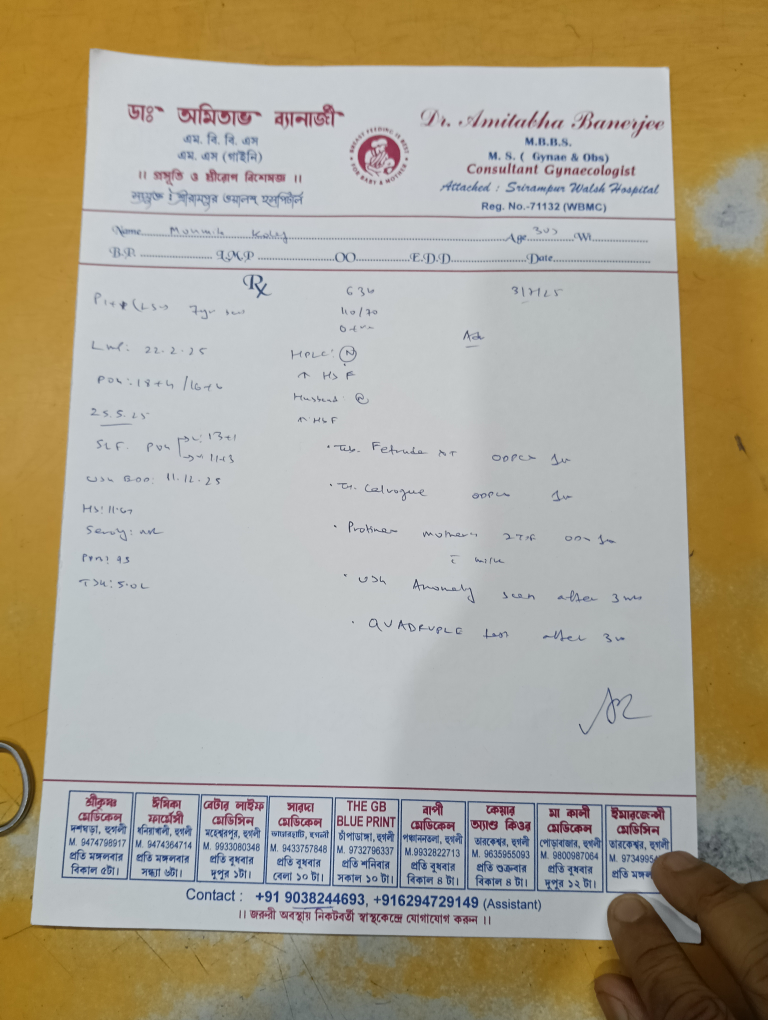 ডাঃ অমিতাভ ব্যানার্জী
এম. বি. বি. এস
এম. এস (গাইনি)
।। প্রসূতি ও স্ত্রীরোগ বিশেষজ্ঞ ।।
সংযুক্ত : শ্রীরামপুর ওয়ালস হসপিটাল
BREAST FEEDING IS BEST
FOR BABY & MOTHER
Dr. Amitabha Banerjee
M.B.B.S.
M. S. ( Gynae & Obs)
Consultant Gynaecologist
Attached : Srirampur Walsh Hospital
Reg. No.-71132 (WBMC)
Name Age Wt.
B.P. L.M.P OO E.D.D. Date
Rx
3/7/25
110/70
LMP: 22.2.25
POG: 18+4 /16+6
25.5.25
13+1
11+3
USG EDD: 11.12.25
TSH: 5.02
HPLC: N
↑ HbF
Husband:
↑ HbF
Adv
• Tab. ODPC 1m
• Tab. ODPC 1m
• Protinex mother's 2TSF 1m
c milk
• USG Anomaly scan after 3 wks
• QUADRUPLE test after 3w
শ্রীকৃষ্ণ মেডিকেল
দশঘড়া, হুগলী
M. 9474798917
প্রতি মঙ্গলবার
বিকাল ৫টা।
ঈশিকা ফার্মেসী
ধনিয়াখালী, হুগলী
M. 9474364714
প্রতি মঙ্গলবার
সন্ধ্যা ৬টা।
বেটার লাইফ মেডিসিন
মহেশ্বরপুর, হুগলী
M. 9933080348
প্রতি বুধবার
দুপুর ১টা।
সারদা মেডিকেল
হুগলী
M. 9433757848
প্রতি বুধবার
বেলা ১০ টা।
THE GB BLUE PRINT
চাঁপাডাঙ্গা, হুগলী
M. 9732796337
প্রতি শনিবার
সকাল ১০ টা।
বাপী মেডিকেল
পঞ্চাননতলা, হুগলী
M.9932822713
প্রতি বুধবার
বিকাল ৪ টা।
কেয়ার অ্যান্ড কিওর
তারকেশ্বর, হুগলী
M. 9635955093
প্রতি শুক্রবার
বিকাল ৪ টা।
মা কালী মেডিকেল
পোড়াবাজার, হুগলী
M. 9800987064
প্রতি বুধবার
দুপুর ১২ টা।
ইমারজেন্সী মেডিসিন
তারকেশ্বর, হুগলী
M. 973499
প্রতি
Contact : +91 9038244693, +916294729149 (Assistant)
।। জরুরী অবস্থায় নিকটবর্তী স্বাস্থ্যকেন্দ্রে যোগাযোগ করুন ।।